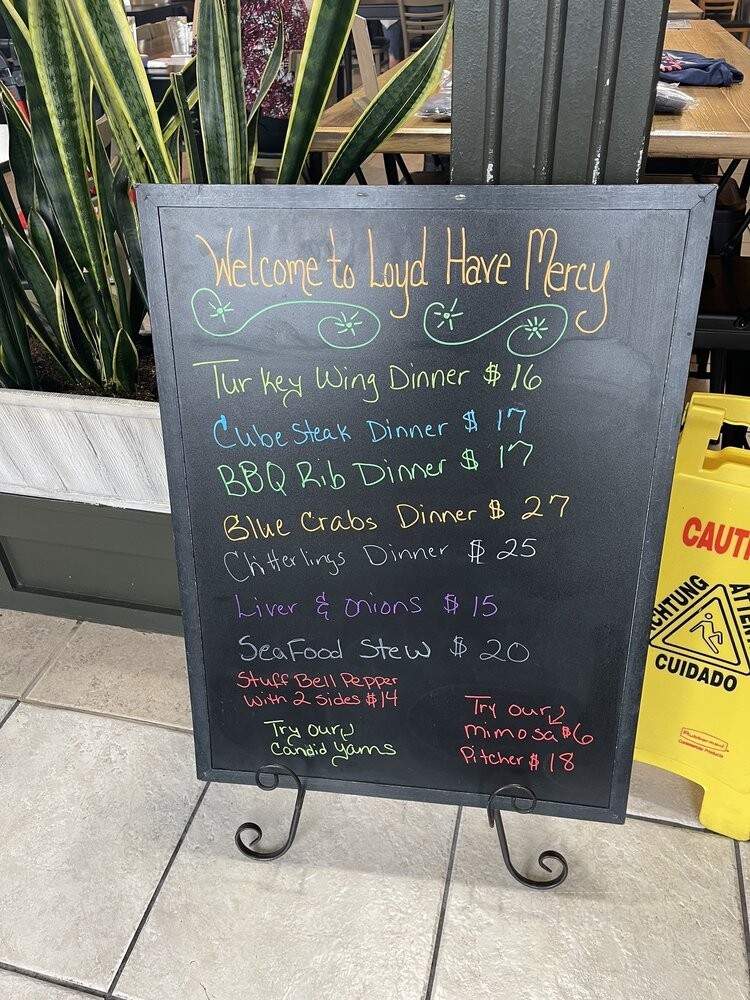 Welcome to Loyd Have Mercy
Turkey Wing Dinner $16
Cube Steak Dinner $ 17
BBQ Rib Dinner $ 17
Blue Crabs Dinner $ 27
Chitterlings Dinner $ 25
Liver & onions $ 15
SeaFood Stew $ 20
Stuff Bell Pepper
with 2 sides $14
Try our
Candid Yams
Try our
mimosa $6
Pitcher $ 18
CAUTI
CHTUNG
ATTE
CUIDADO
Rubbermaid
Commercial Products